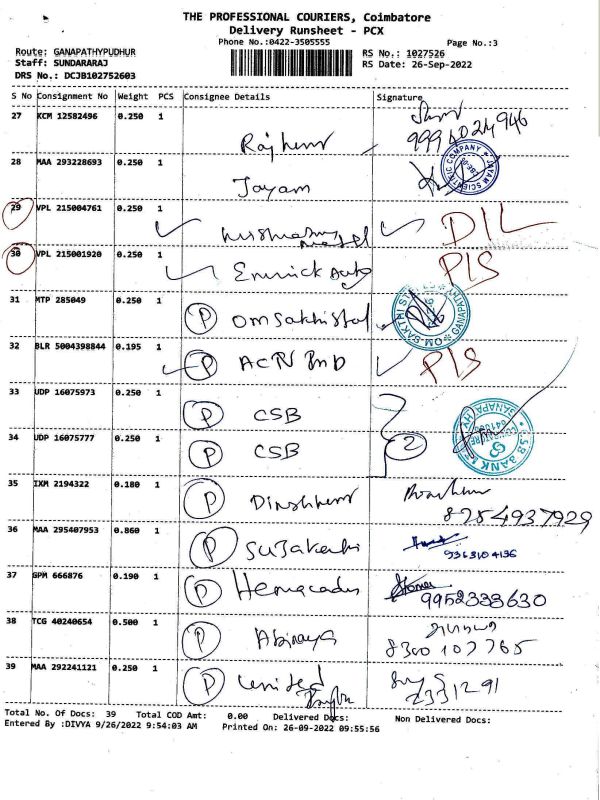 THE PROFESSIONAL COURIERS, Coimbatore
Delivery Runsheet - PCX
Phone No.:0422-3505555
Page No.:3
Route: GANAPATHYPUDHUR
RS No.: 1027526
Staff: SUNDARARAJ
RS Date: 26-Sep-2022
DRS No.: DCJB102752603
S No Consignment No Weight PCS Consignee Details Signature
27 KCM 12582496 0.250 1
9994024946
28 MAA 293228693 0.250 1 Jayam
JAYAM SCIENTIFIC COMPANY
29 VPL 215004761 0.250 1 D/L
30 VPL 215001920 0.250 1 P/S
31 MTP 285049 0.250 1 P
GANAPATHY OM SAKTHI
32 BLR 5004398844 0.195 1 P P/S
33 UDP 16075973 0.250 1 P CSB
34 UDP 16075777 0.250 1 P CSB 2
35 IXM 2194322 0.180 1 P
8254937929
36 MAA 295407953 0.860 1 P
9363104136
37 GPM 666876 0.190 1 P
9952333630
38 TCG 40240654 0.500 1 P Abinaya
8300107765
39 MAA 292241121 0.250 1 P United
2331291
Total No. Of Docs: 39 Total COD Amt: 0.00 Delivered Docs: Non Delivered Docs:
Entered By :DIVYA 9/26/2022 9:54:03 AM Printed On: 26-09-2022 09:55:56